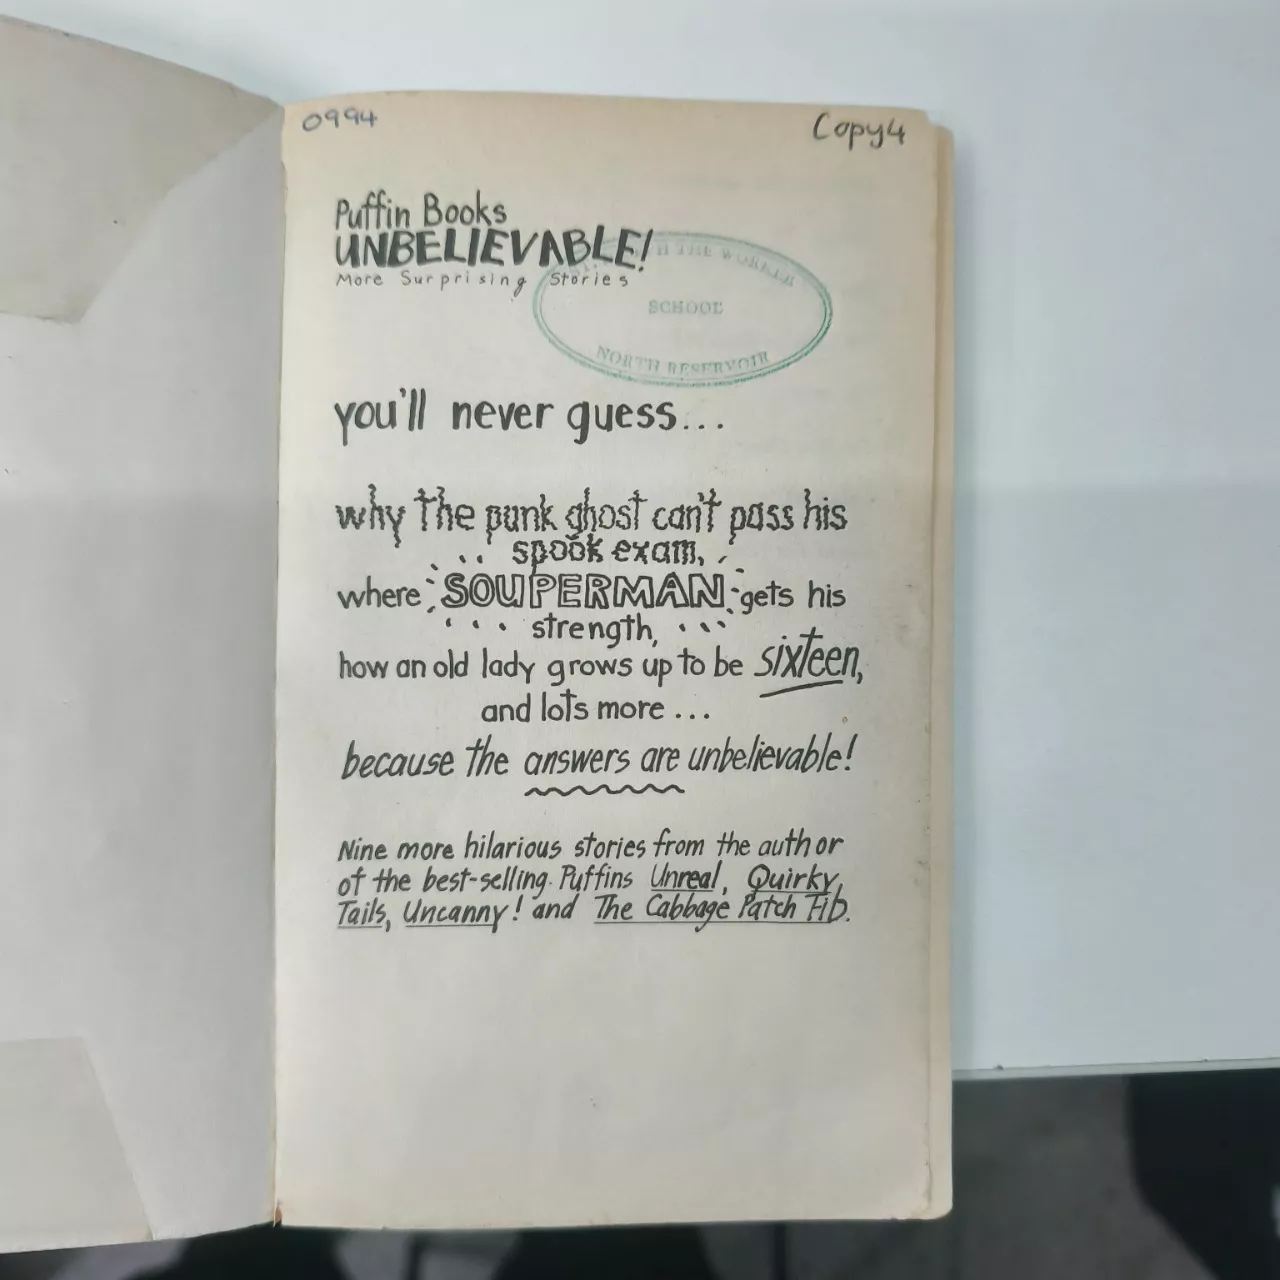 0994
Copy4
Puffin Books
UNBELIEVABLE!
More Surprising Stories
H THE WORKER
SCHOOL
NORTH RESERVOIR
you'll never guess...
why the punk ghost can't pass his
spook exam,
where SOUPERMAN gets his
strength,
how an old lady grows up to be sixteen,
and lots more ...
because the answers are unbelievable!
Nine more hilarious stories from the author
of the best-selling Puffins Unreal, Quirky
Tails, Uncanny! and The Cabbage Patch Fib.